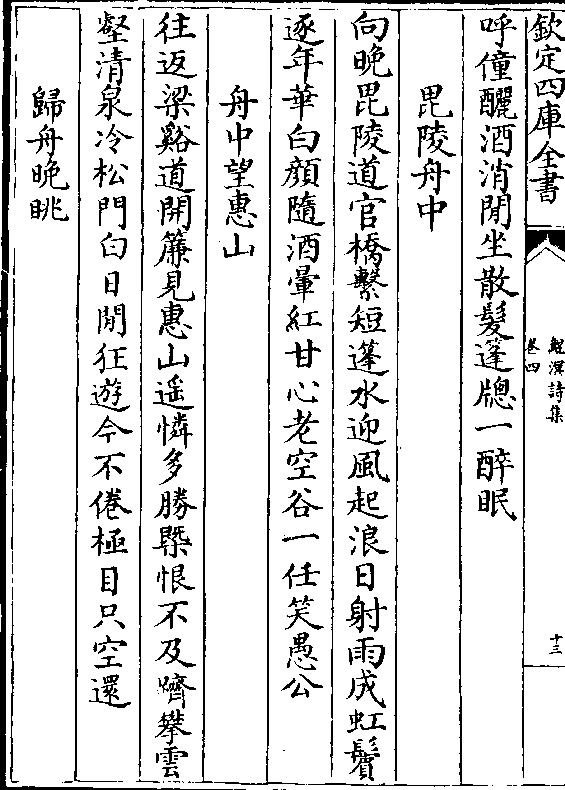 欽定四庫全書
鯤溟詩集
卷四
十三
呼僮釃酒消閒坐散髮篷牕一醉眠
毘陵舟中
向晚毘陵道官橋繫短篷水迎風起浪日射雨成虹鬢
逐年華白顔隨酒暈紅甘心老空谷一任笑愚公
舟中望惠山
往返梁谿道開簾見惠山遥憐多勝槩恨不及躋攀雲
壑清泉冷松門白日閒狂遊今不倦極目只空還
歸舟晩眺